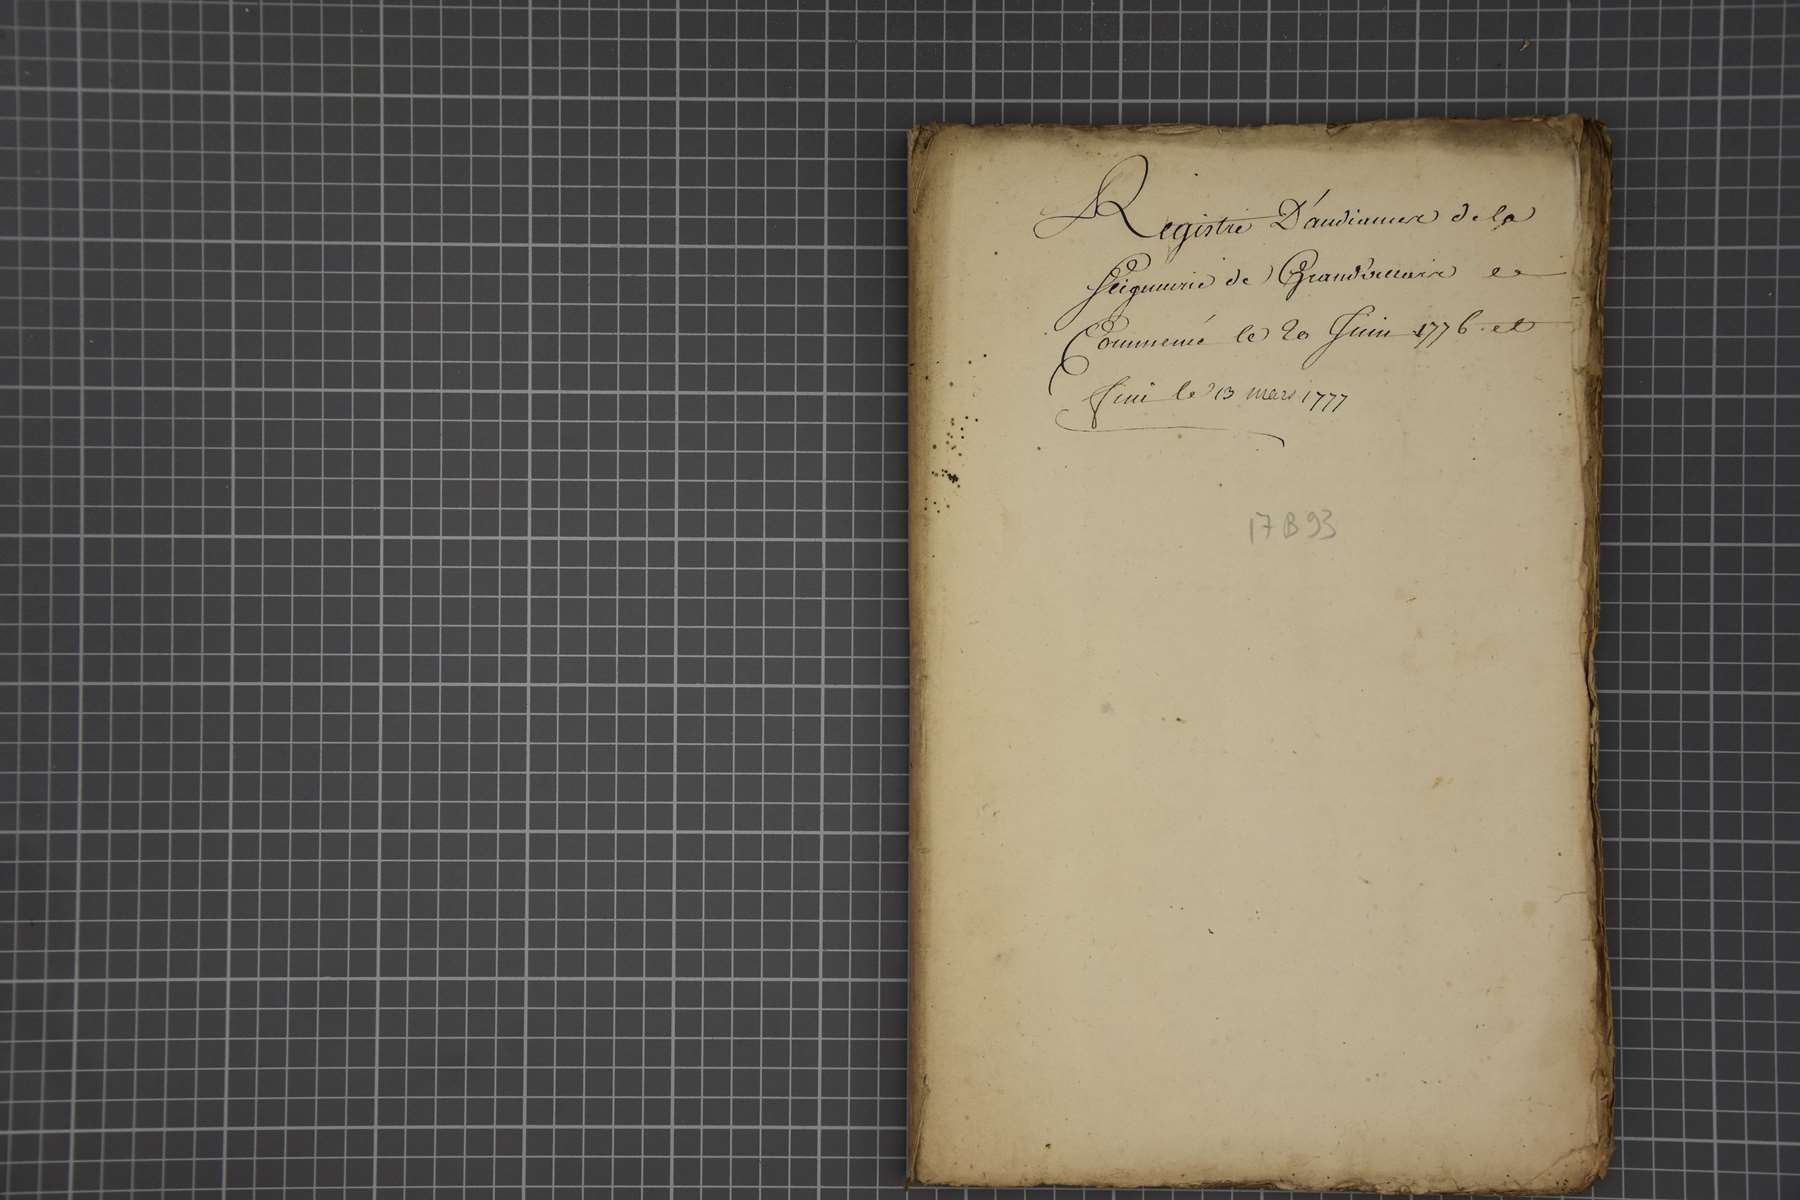 Registre D'audiances de la
Seigneurie de Grandvaux
Commencé le 20 Juin 1776 et
fini le 13 mars 1777
17 B 93